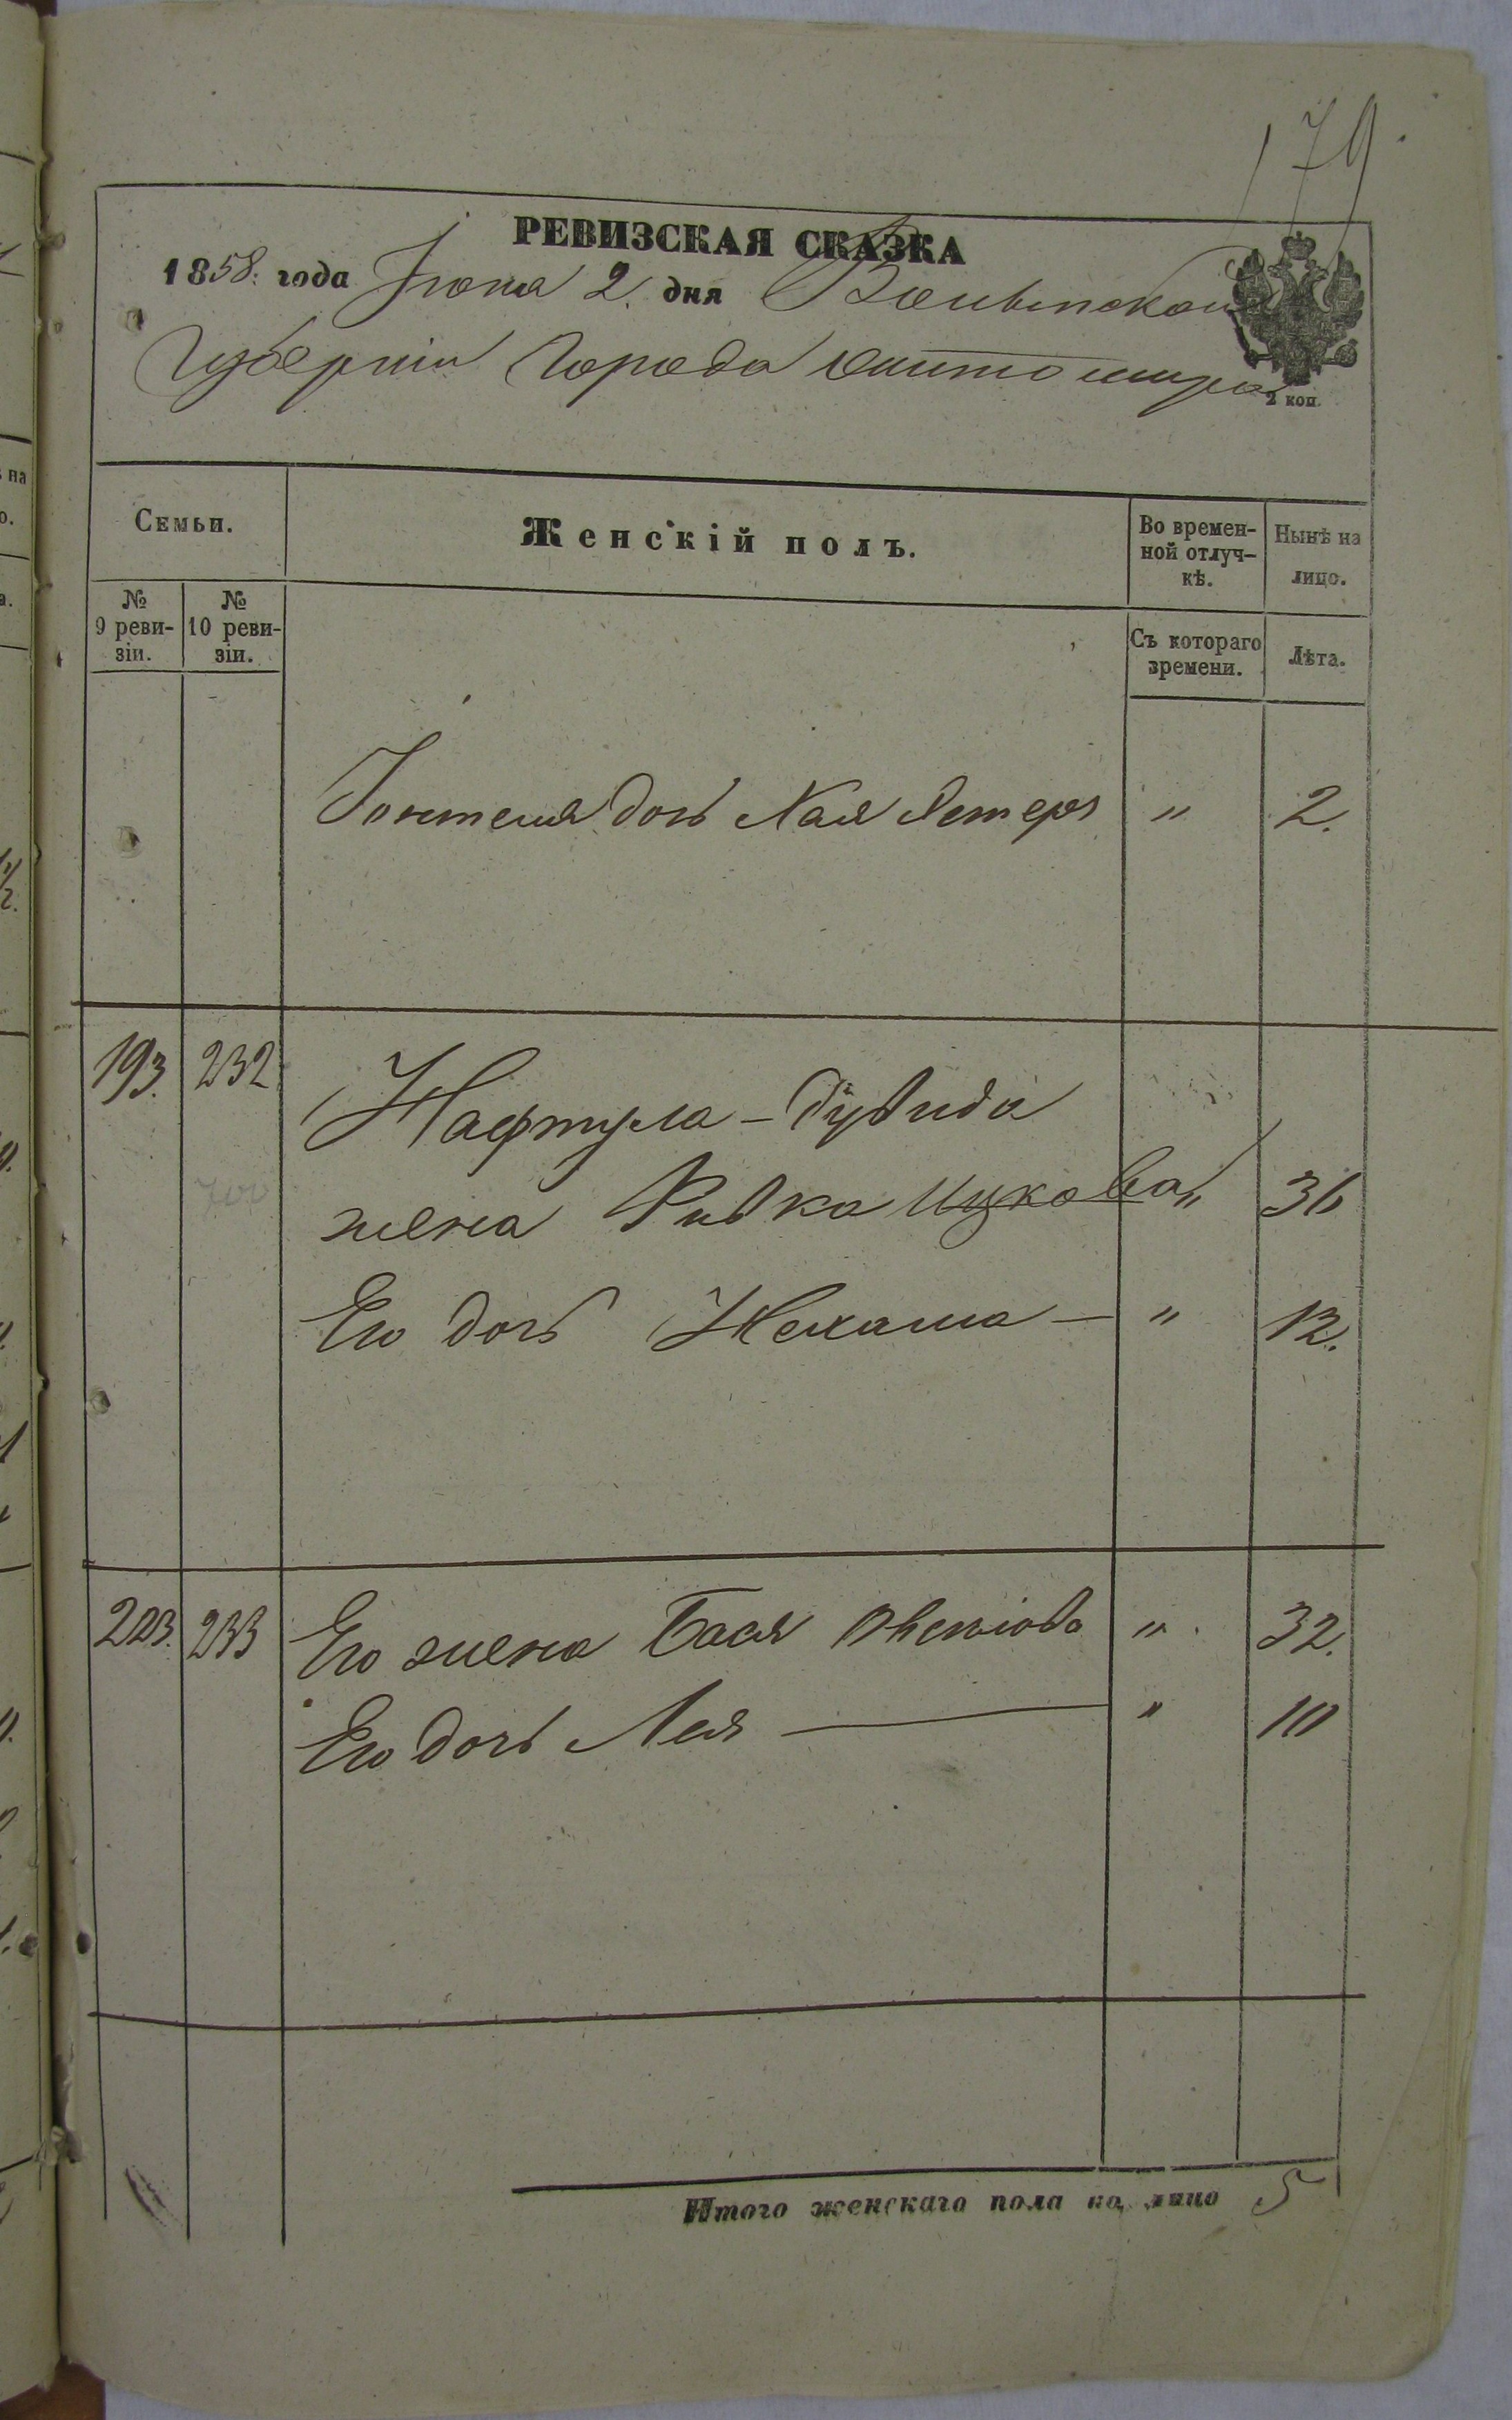 179.
РЕВИЗСКАЯ СКАЗКА
1858. года Іюня 2. дня Волынской
Губерніи Города Житомира
2 коп.
Семьи.
Женскій полъ.
Во времен-
ной отлуч-
кѣ.
Нынѣ на
лицо.
№
9 реви-
зіи.
№
10 реви-
зіи.
Съ котораго
времени.
Лѣта.
дочь Хая Эстеръ " 2.
193. 232 Нафтула-Дувида
жена Ривка Ицкова " 36
Его дочь Нехама — " 12.
203. 233 Его жена Бася " 32.
Его дочь Лея — " 10
Итого женскаго пола на лицо 5